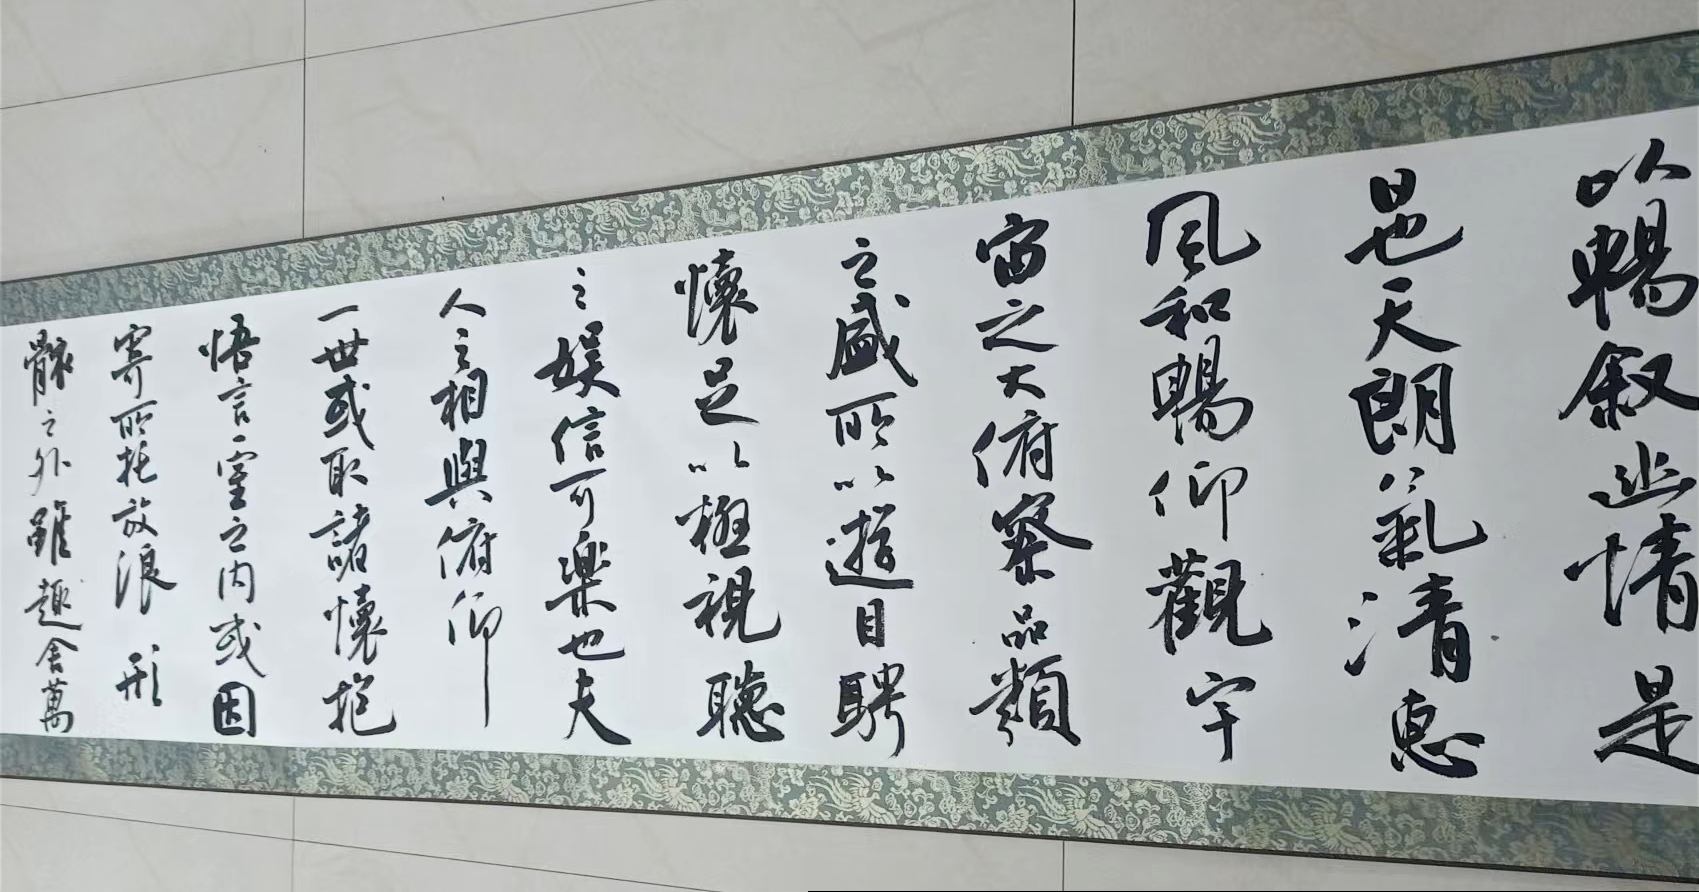 以暢叙幽情是
日也天朗氣清惠
風和暢仰觀宇
宙之大俯察品類
之盛所以遊目騁
懷足以極視聽
之娱信可樂也夫
人之相與俯仰
一世或取諸懷抱
悟言一室之内或因
寄所托放浪形
骸之外雖趣舍萬